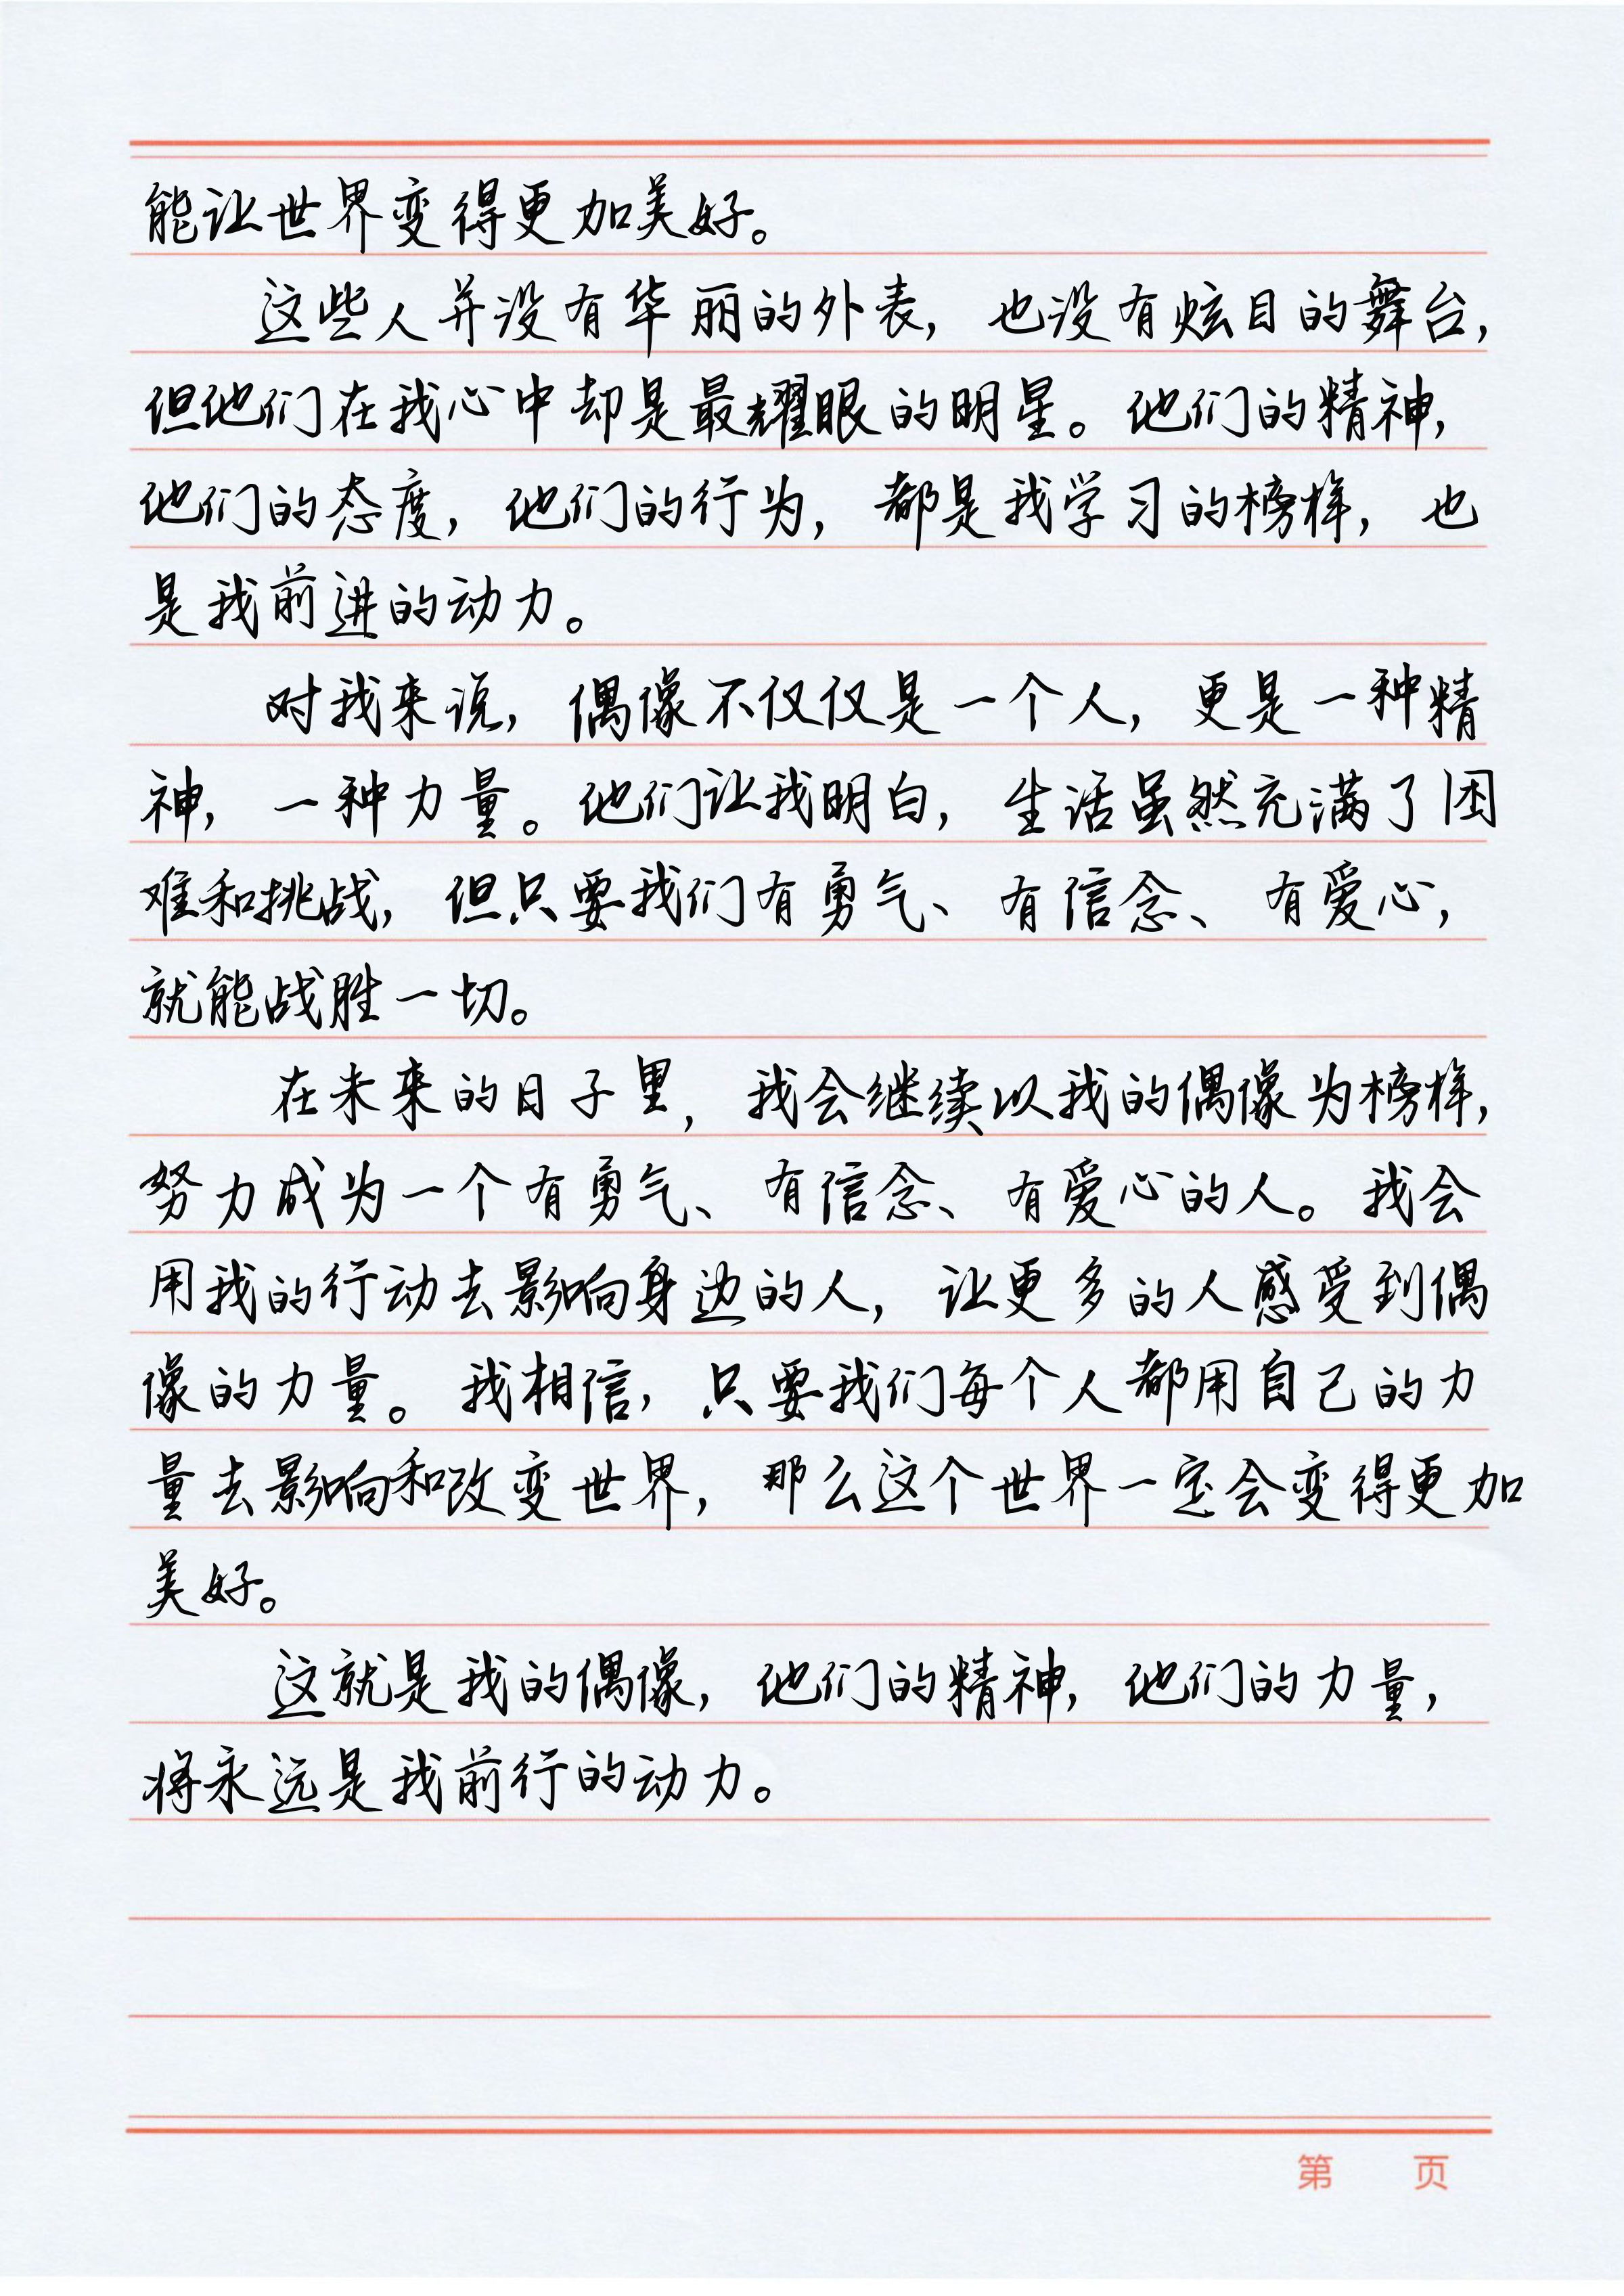 能让世界变得更加美好。
这些人并没有华丽的外表，也没有炫目的舞台，
但他们在我心中却是最耀眼的明星。他们的精神，
他们的态度，他们的行为，都是我学习的榜样，也
是我前进的动力。
对我来说，偶像不仅仅是一个人，更是一种精
神，一种力量。他们让我明白，生活虽然充满了困
难和挑战，但只要我们有勇气、有信念、有爱心，
就能战胜一切。
在未来的日子里，我会继续以我的偶像为榜样，
努力成为一个有勇气、有信念、有爱心的人。我会
用我的行动去影响身边的人，让更多的人感受到偶
像的力量。我相信，只要我们每个人都用自己的力
量去影响和改变世界，那么这个世界一定会变得更加
美好。
这就是我的偶像，他们的精神，他们的力量，
将永远是我前行的动力。
第 页